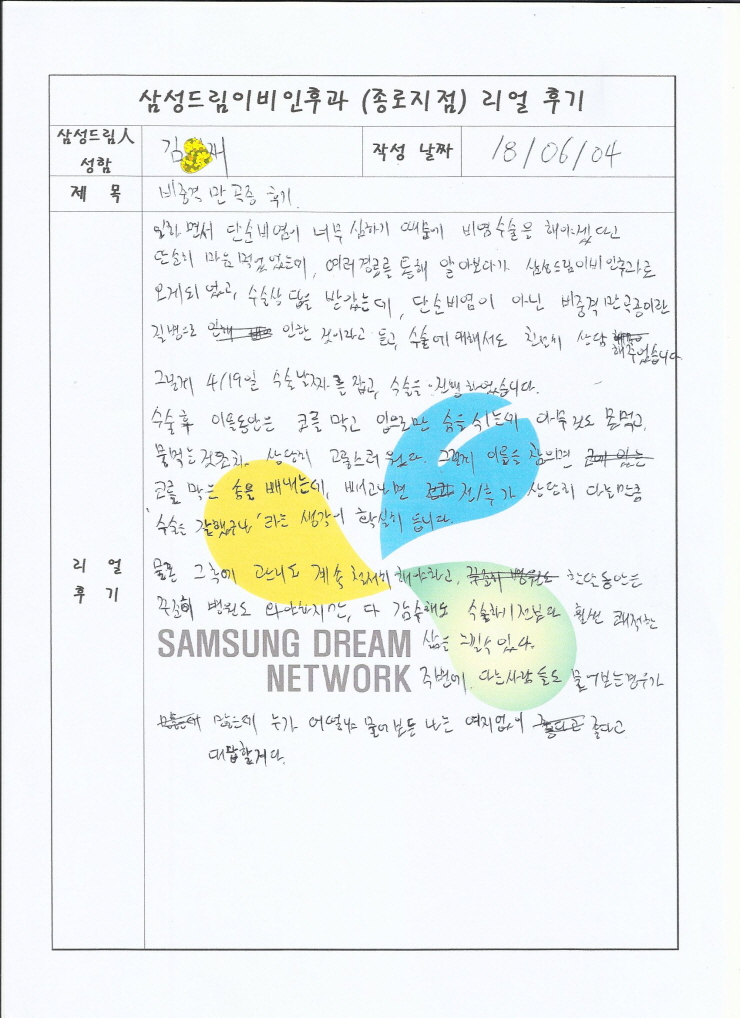 삼성드림이비인후과 (종로지점) 리얼 후기
삼성드림人 성함 김 재 작성 날짜 18/06/04
제 목 비중격 만곡증 후기
리 얼 후 기
일하면서 단순비염이 너무 심하기 때문에 비염수술을 해야겠다고
단순히 마음먹었었는데, 여러경로를 통해 알아보다가 삼성드림이비인후과로
오게되었고, 수술상담을 받았는데, 단순비염이 아닌 비중격만곡증이란
질병으로 인한 것이라고 듣고, 수술에 대해서도 친절히 상담
해주었습니다
그렇게 4/19일 수술날짜를 잡고, 수술을 진행하였습니다.
수술후 이틀동안은 코를 막고 입으로만 숨을 쉬는데 아무것도 못먹고,
물먹는것조차 상당히 고통스러웠다. 그렇게 이틀을 참으면
코를 막는 솜을 빼내는데, 빼고나면 전/후가 상당히 다를만큼
'수술을 잘했구나' 라는 생각이 확실히 듭니다.
물론 그후에 관리도 계속 철저히해야하고, 한달동안은
꾸준히 병원도 와야하지만, 다 감수해도 수술하기전보다 훨씬 쾌적한
삶을 느낄수 있다.
SAMSUNG DREAM
NETWORK
주변에 다른사람들도 물어보는경우가
많은데 누가 물어보든 나는 여지없이 좋다고
대답할게다.